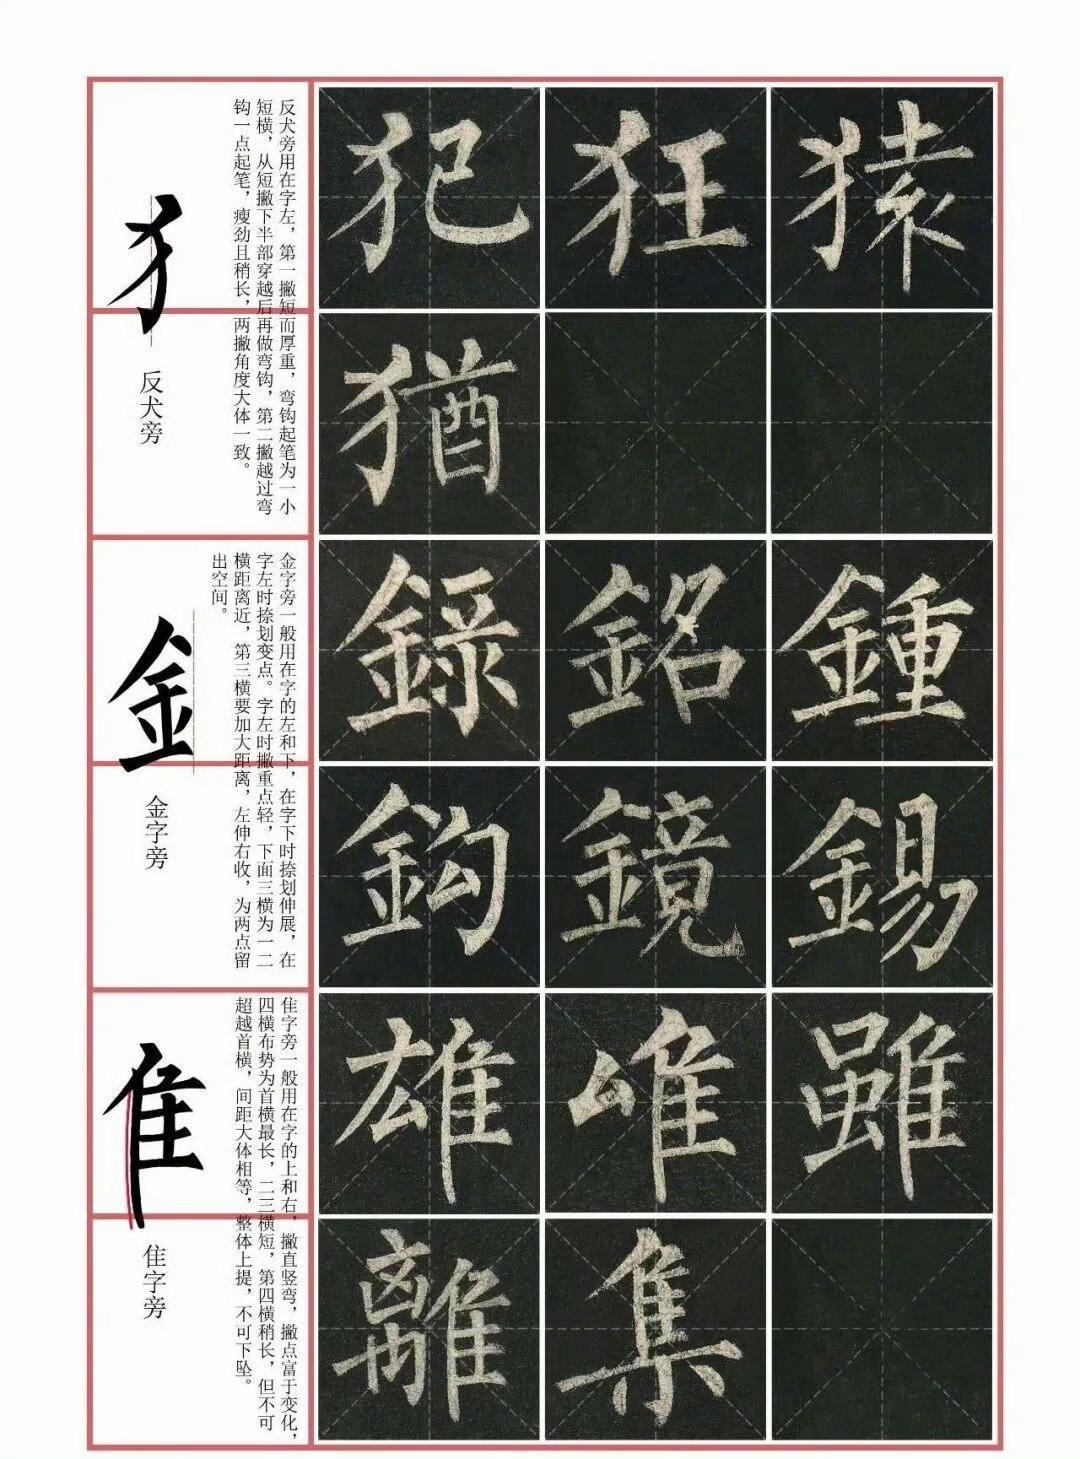 反犬旁用在字左，第一撇短而厚重，弯钩起笔为一小
短横，从短撇下半部穿越后再做弯钩，第二撇越过弯
钩一点起笔，瘦劲且稍长，两撇角度大体一致。
犭
反犬旁
犯 狂 猿
猶
金字旁一般用在字的左和下，在字下时捺划伸展，在
字左时捺划变点。字左时撇重点轻，下面三横为一二
横距离近，第三横要加大距离，左伸右收，为两点留
出空间。
金
金字旁
録 銘 鍾
鈎 鏡 錫
隹字旁一般用在字的上和右，撇直竖弯，撇点富于变化，
四横布势为首横最长，二三横短，第四横稍长，但不可
超越首横，间距大体相等，整体上提，不可下坠。
隹
隹字旁
雄 唯 雖
離 集